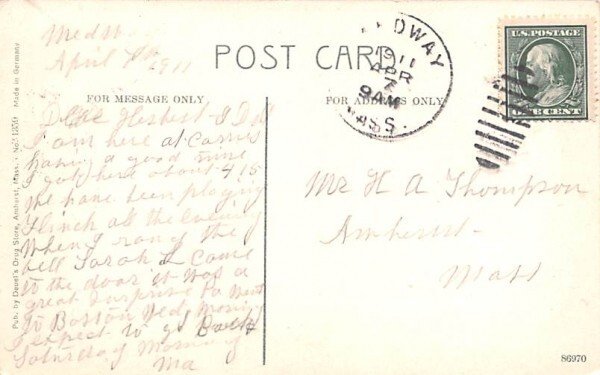 POST CARD
FOR MESSAGE ONLY
FOR ADDRESS ONLY
Medw
April 1911
I am here at Carries
having a good time
I got here about 4 15
We have been playing
Flinch all the evening
When I rang the
bell Sarah L Came
to the door it was a
great surprise Pa went
to Boston Wed, morning
I expect to go Back
Saturday Morning
Ma
MEDWAY
1911
APR
7
9 AM
MASS.
U.S. POSTAGE
ONE CENT
Mr H A Thompson
Amherst
Mass
86970
Pub. by Deuel's Drug Store, Amherst, Mass. Made in Germany